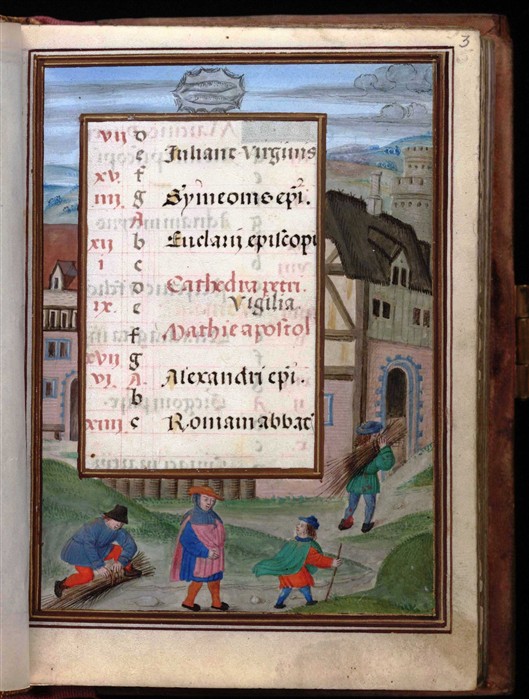 3
vij d
e Juliane Virginis
xv f
iiij g Symeonis epi.
A
xij b Euclarij episcopi
i c
d Cathedra petri
ix. e Vigilia
f Mathie apostol
xvij g
vj. A. Alexandri epi.
b
xiiij c Romani abbat